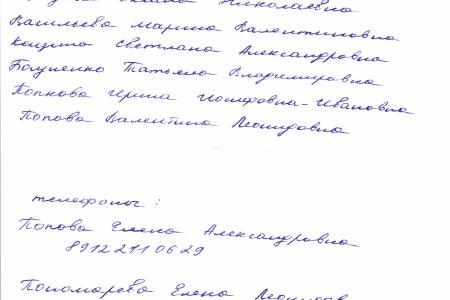 Николаевна
Васильева Марина Валентиновна
Светлана Александровна
Татьяна Владимировна
Попкова Ирина Иосифовна-Ивановна
Попова Валентина Леонидовна
телефоны:
Попова Елена Александровна
89122110629
Пономарева Елена